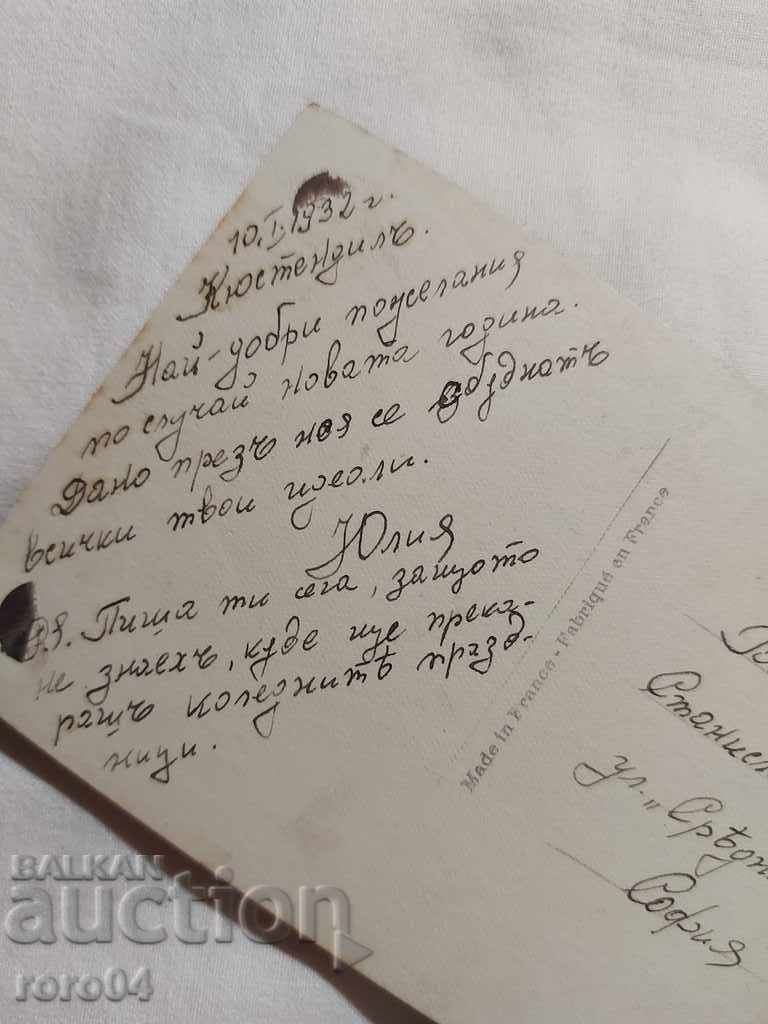 10.I.1932 г.
Кюстендилъ.
Най-добри пожелания
по случай новата година.
Дано презъ нея се сбѫднатъ
всички твои идеали.
Юлия
P.S. Пиша ти сега, защото
не знаехъ, кѫде ще прека-
рашъ коледнитѣ празд-
ници.
Made in France - Fabriqué en France
Станисл
ул. „Срѣдн
София
BALKAN
auction
roro04